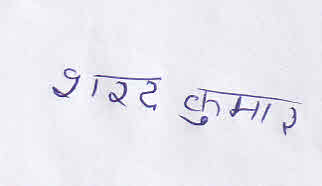 शरद कुमार